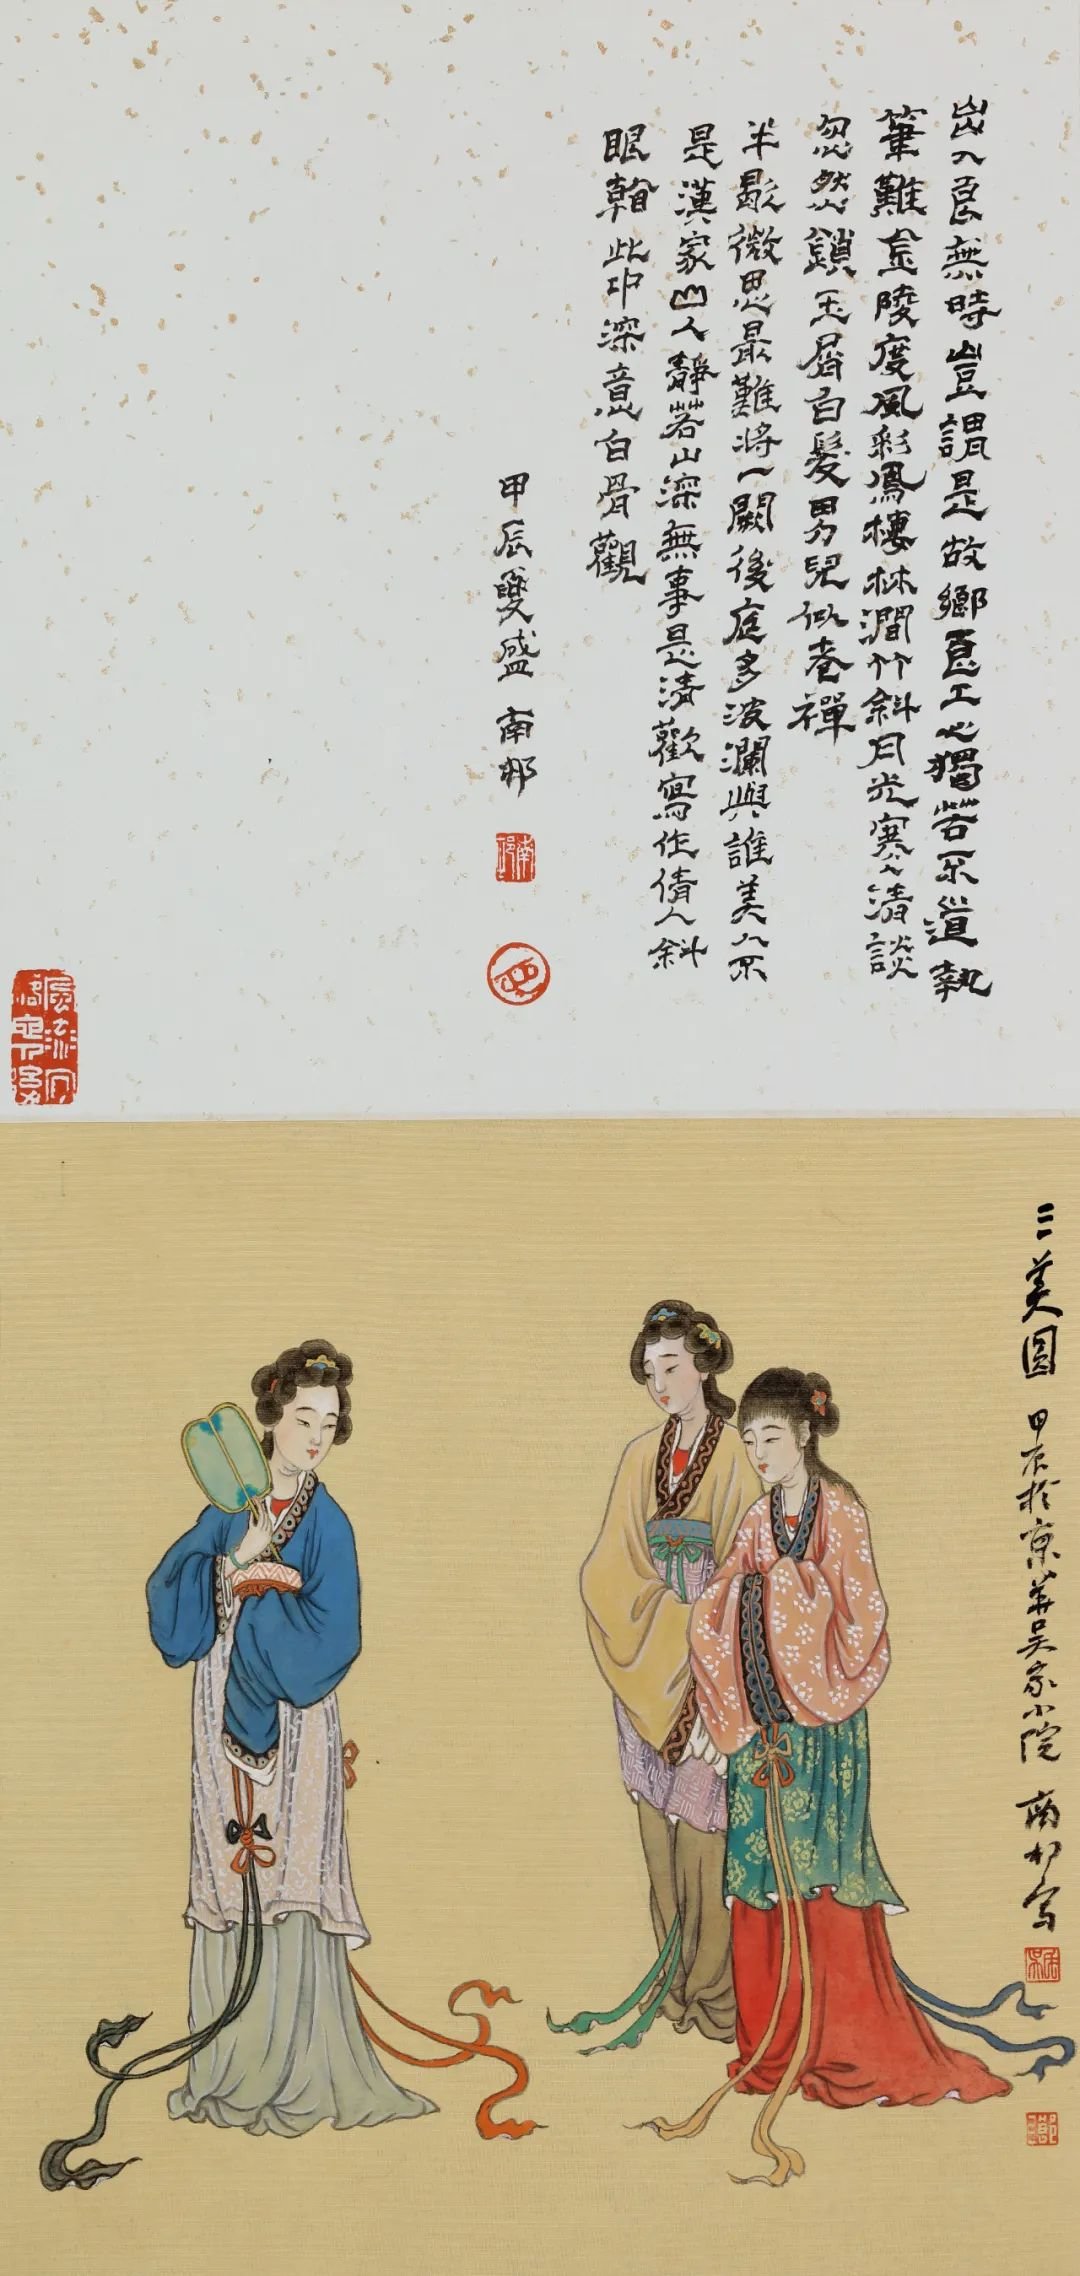 出入良無時豈謂是故鄉良工心獨苦不道執
筆難金陵度風彩鳳樓林澗竹斜月光寒清談
忽然鎖玉屑白髮男兒似老禪
半歇微思最難將一闕後庭多波瀾與誰美人原
是漢家山人靜若山深無事是清歡寫作倩人斜
眼看此中深意白骨觀
甲辰夏盛 南邨
三美圖 甲辰於京華吴家小院 南邨写